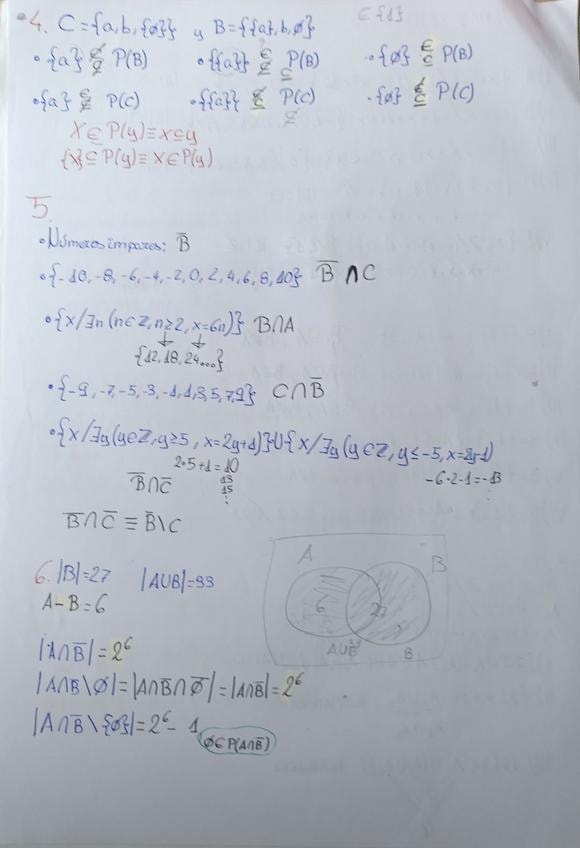 C {1}
4. C = {a, b, {ø}} y B = {{a}, b, ø}
• {a} P(B) • {{a}} P(B) • {ø} P(B)
⊆
• {a} P(C) • {{a}} P(C) • {ø} P(C)
X ∈ P(y) ≡ x ⊆ y
{x} ⊆ P(y) ≡ x ∈ P(y)
5.
• Números impares: B̅
• {-10, -8, -6, -4, -2, 0, 2, 4, 6, 8, 10} B̅ ∩ C
• {x/∃n (n∈Z, n≥2, x=6n)} B∩A
{12, 18, 24...}
• {-9, -7, -5, -3, -1, 1, 3, 5, 7, 9} C ∩ B̅
• {x/∃y (y∈Z, y≥5, x=2y+1)} U {x/∃y (y∈Z, y≤-5, x=2y-1)
2·5+1=10
-6·2-1=-13
13
B̅∩C̅ 15
B̅∩C̅ ≡ B̅\C
6. |B|=27 |AUB|=33
A-B=6
A B
6 27
AUB B
|A∩B̅| = 2⁶
|A∩B̅ \ ∅| = |A∩B̅∩∅̅| = |A∩B̅| = 2⁶
|A∩B̅ \ {ø}| = 2⁶ - 1
ø∈P(A∩B̅)